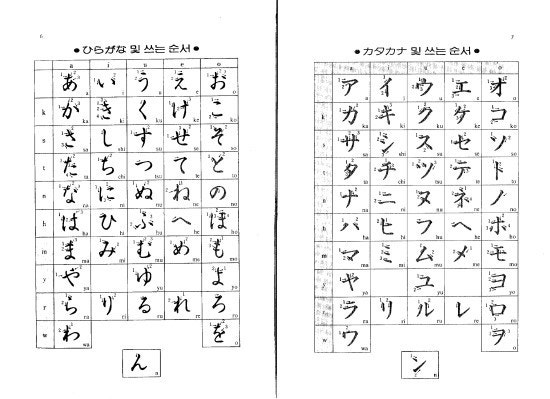 6
● ひらがな 및 쓰는 순서 ●
a i u e o
あ a い i う u え e お o
k か ka き ki く ku け ke こ ko
s さ sa し shi す su せ se そ so
t た ta ち chi つ tsu て te と to
n な na に ni ぬ nu ね ne の no
h は ha ひ hi ふ fu へ he ほ ho
m ま ma み mi む mu め me も mo
y や ya ゆ yu よ yo
r ら ra り ri る ru れ re ろ ro
w わ wa を o
ん n
7
● カタカナ 및 쓰는 순서 ●
a i u e o
ア a イ i ウ u エ e オ o
k カ ka キ ki ク ku ケ ke コ ko
s サ sa シ shi ス su セ se ソ so
t タ ta チ chi ツ tsu テ te ト to
n ナ na ニ ni ヌ nu ネ ne ノ no
h ハ ha ヒ hi フ fu ヘ he ホ ho
m マ ma ミ mi ム mu メ me モ mo
y ヤ ya ユ yu ヨ yo
r ラ ra リ ri ル ru レ re ロ ro
w ワ wa ヲ o
ン n